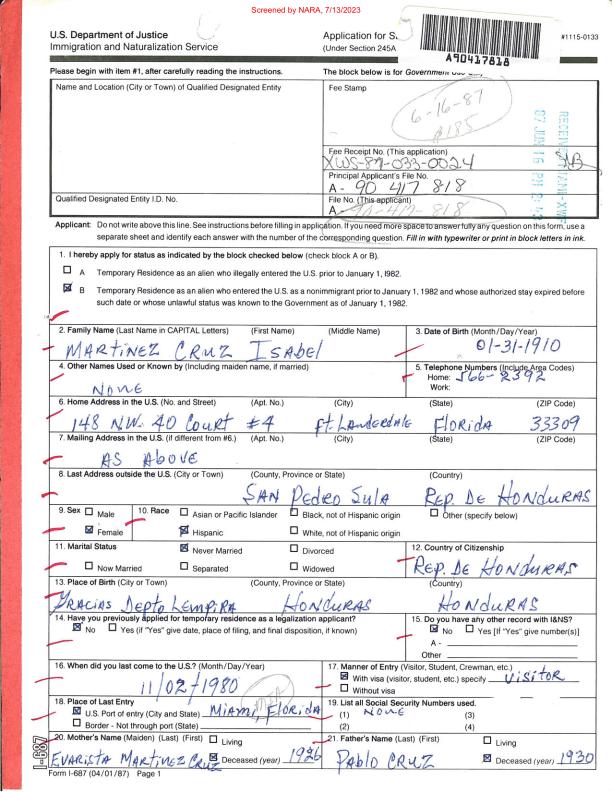 Screened by NARA, 7/13/2023
U.S. Department of Justice
Immigration and Naturalization Service
Application for
(Under Section 245A
#1115-0133
A90417818
Please begin with item #1, after carefully reading the instructions.
The block below is for Government Use
Name and Location (City or Town) of Qualified Designated Entity
Fee Stamp
6-16-87
$185
Fee Receipt No. (This application)
XWS-87-033-0024
Principal Applicant's File No.
A - 90 417 818
Qualified Designated Entity I.D. No.
File No. (This applicant)
A - 90-417-818
87 JUN 16 PM
Applicant: Do not write above this line. See instructions before filling in application. If you need more space to answer fully any question on this form, use a
separate sheet and identify each answer with the number of the corresponding question. Fill in with typewriter or print in block letters in ink.
1. I hereby apply for status as indicated by the block checked below (check block A or B).
A Temporary Residence as an alien who illegally entered the U.S. prior to January 1, 1982.
B Temporary Residence as an alien who entered the U.S. as a nonimmigrant prior to January 1, 1982 and whose authorized stay expired before
such date or whose unlawful status was known to the Government as of January 1, 1982.
2. Family Name (Last Name in CAPITAL Letters) (First Name) (Middle Name) 3. Date of Birth (Month/Day/Year)
MARTINEZ CRUZ ISABEL 01-31-1910
4. Other Names Used or Known by (Including maiden name, if married) 5. Telephone Numbers (Include Area Codes)
NONE Home: 566-2392
Work:
6. Home Address in the U.S. (No. and Street) (Apt. No.) (City) (State) (ZIP Code)
148 N.W. 40 COURT #4 Ft. LAUDERDALE FLORIDA 33309
7. Mailing Address in the U.S. (if different from #6.) (Apt. No.) (City) (State) (ZIP Code)
AS ABOVE
8. Last Address outside the U.S. (City or Town) (County, Province or State) (Country)
SAN PEDRO SULA REP. DE HONDURAS
9. Sex Male 10. Race Asian or Pacific Islander Black, not of Hispanic origin Other (specify below)
Female Hispanic White, not of Hispanic origin
11. Marital Status Never Married Divorced 12. Country of Citizenship
Now Married Separated Widowed REP. DE HONDURAS
13. Place of Birth (City or Town) (County, Province or State) (Country)
GRACIAS DEPTO LEMPIRA HONDURAS HONDURAS
14. Have you previously applied for temporary residence as a legalization applicant? 15. Do you have any other record with I&NS?
No Yes (if "Yes" give date, place of filing, and final disposition, if known) No Yes [If "Yes" give number(s)]
A -
Other
16. When did you last come to the U.S.? (Month/Day/Year) 17. Manner of Entry (Visitor, Student, Crewman, etc.)
11/02/1980 With visa (visitor, student, etc.) specify VISITOR
Without visa
18. Place of Last Entry 19. List all Social Security Numbers used.
U.S. Port of entry (City and State) MIAMI, FLORIDA (1) NONE (3)
MIA
Border - Not through port (State) (2) (4)
20. Mother's Name (Maiden) (Last) (First) Living 21. Father's Name (Last) (First) Living
EVARISTA MARTINEZ CRUZ Deceased (year) 1926 PABLO CRUZ Deceased (year) 1930
I-687
Form I-687 (04/01/87) Page 1